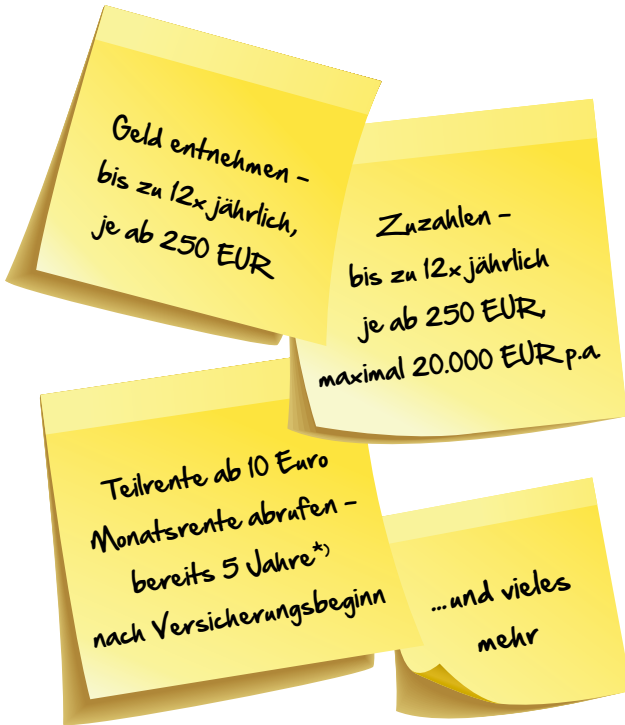 Geld entnehmen –
bis zu 12x jährlich,
je ab 250 EUR
Zuzahlen –
bis zu 12x jährlich
je ab 250 EUR,
maximal 20.000 EUR p.a.
Teilrente ab 10 Euro
Monatsrente abrufen –
bereits 5 Jahre*)
nach Versicherungsbeginn
...und vieles
mehr